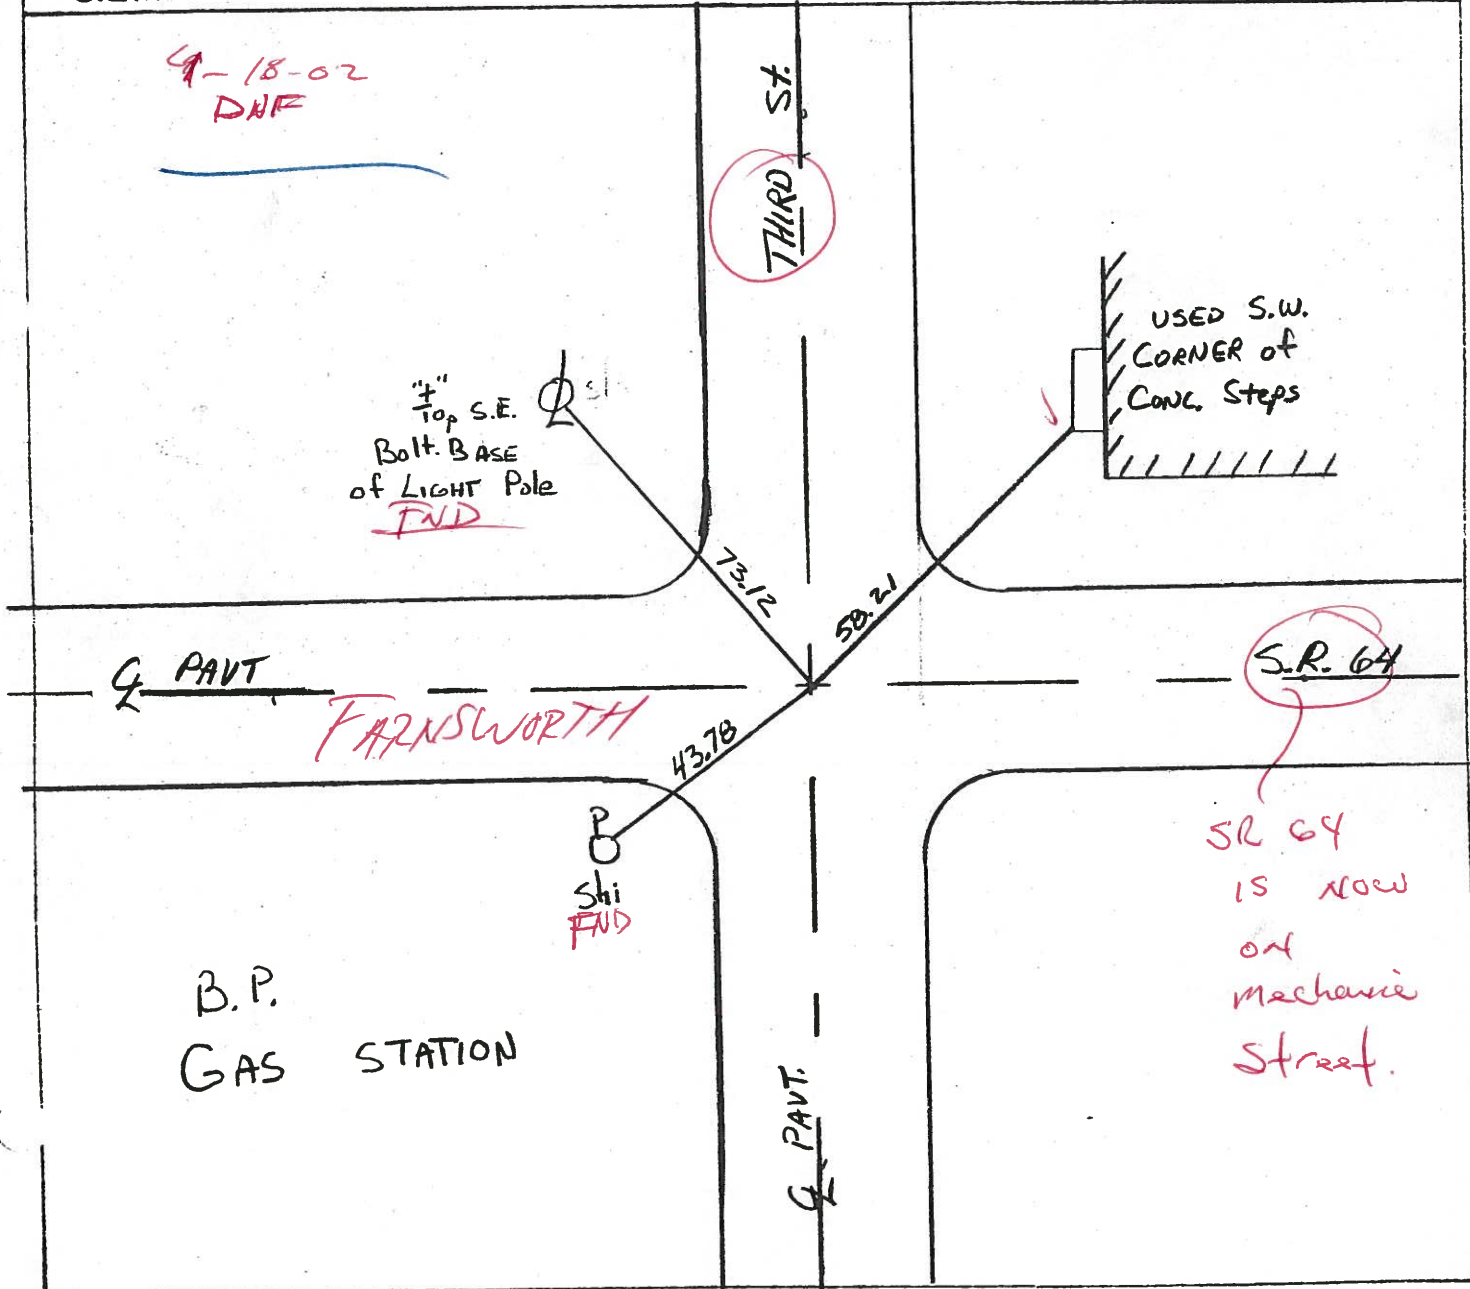 4-18-02
DNF
THIRD St.
USED S.W.
CORNER of
CONC. Steps
"+"
Top S.E.
Bolt. BASE
of LIGHT Pole
FND
73.12
58.21
℄ PAVT
S.R. 64
FARNSWORTH
43.78
P
Shi
FND
SR 64
IS NOW
ON
Mechanic
Street.
B.P.
GAS STATION
℄ PAVT.